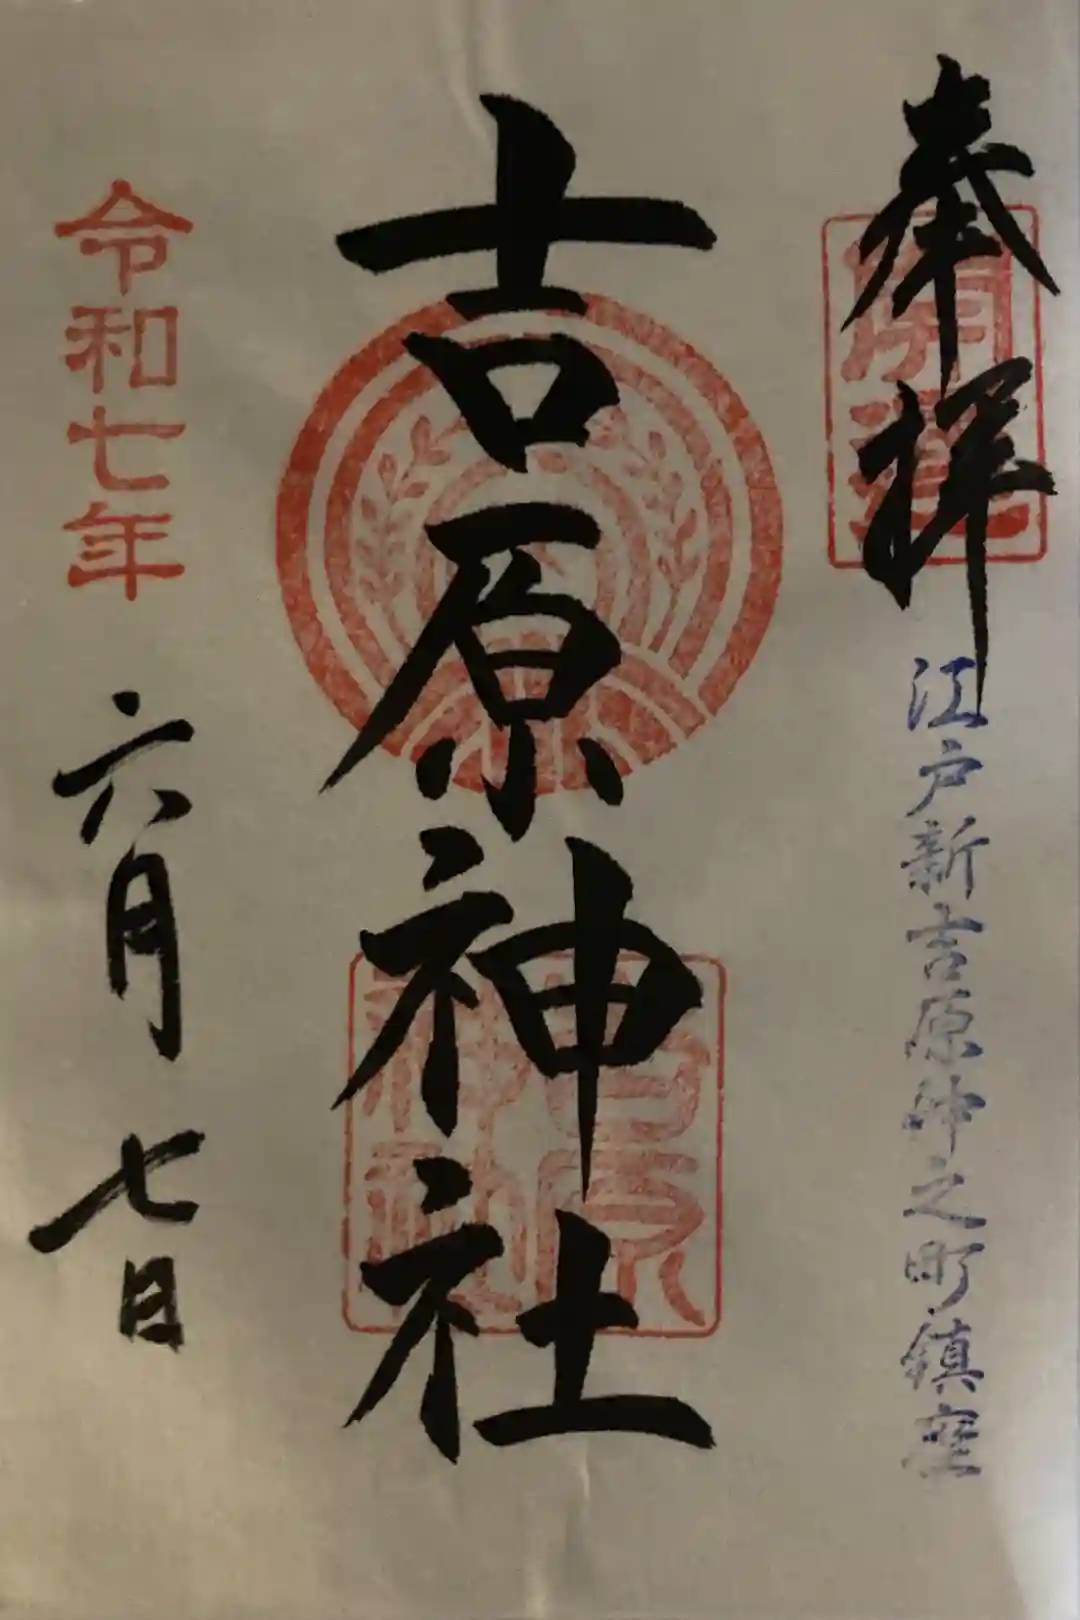 奉拝
江戸新吉原仲之町鎮座
吉原神社
吉原
神社
令和七年
六月七日